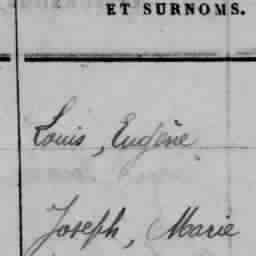 ET SURNOMS.
Louis, Eugène
Joseph, Marie